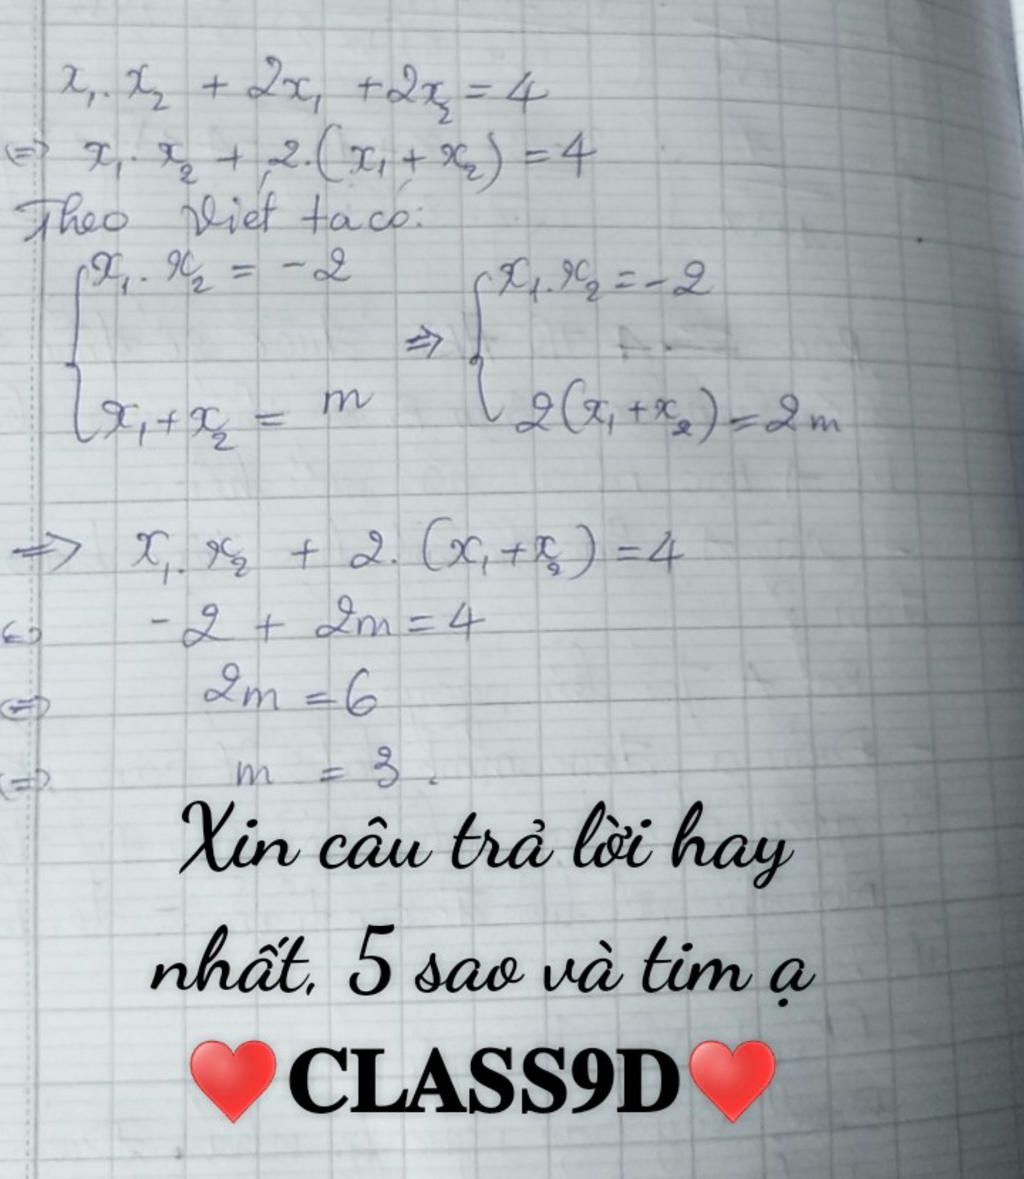 x₁.x₂ + 2x₁ + 2x₂ = 4
<=> x₁.x₂ + 2.(x₁ + x₂) = 4
Theo Viét ta có:
{x₁.x₂ = -2 => {x₁.x₂ = -2
{x₁ + x₂ = m {2(x₁ + x₂) = 2m
=> x₁.x₂ + 2.(x₁ + x₂) = 4
<=> -2 + 2m = 4
<=> 2m = 6
<=> m = 3.
Xin câu trả lời hay
nhất, 5 sao và tim ạ
❤️CLASS9D❤️